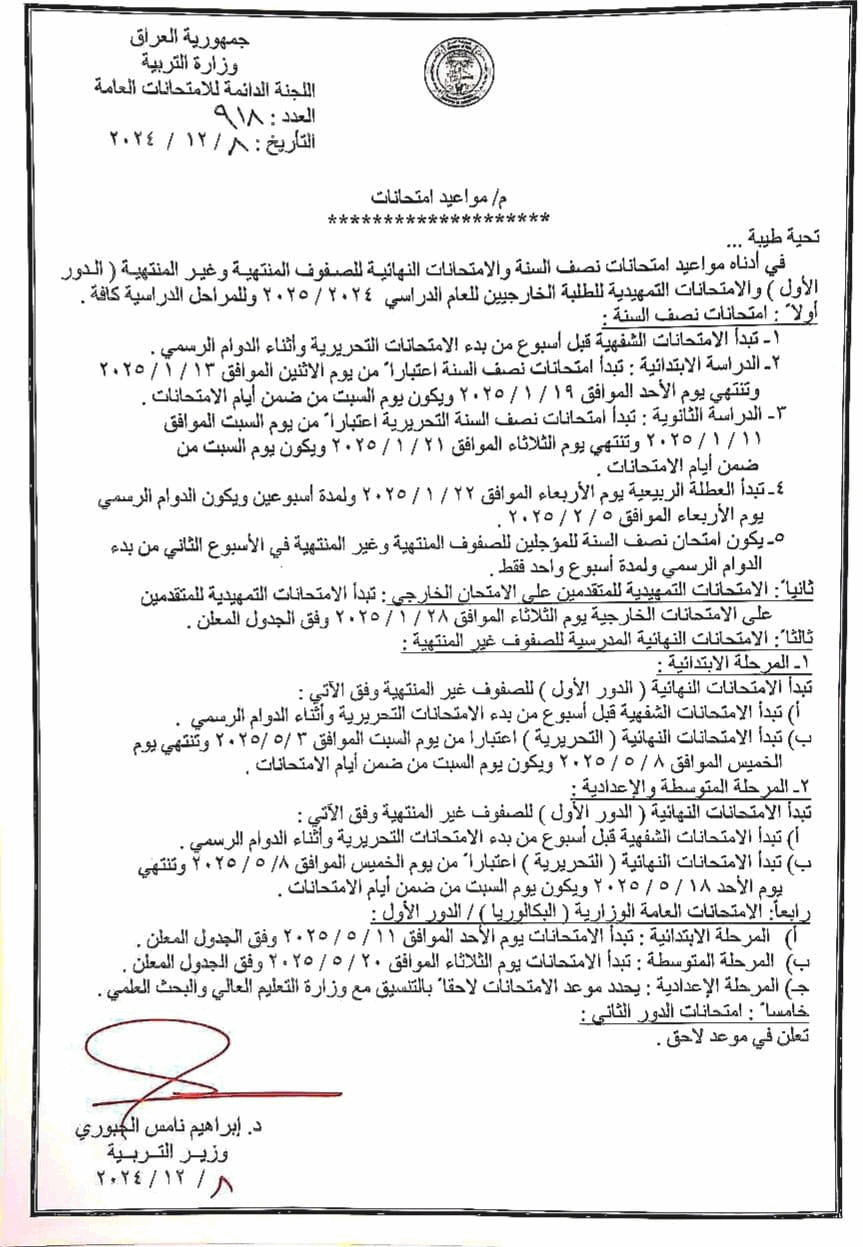 جمهورية العراق
وزارة التربية
اللجنة الدائمة للامتحانات العامة
العدد : ٩١٨
التأريخ : ٨ / ١٢ / ٢٠٢٤
م/ مواعيد امتحانات
********************
تحية طيبة ...
في أدناه مواعيد امتحانات نصف السنة والامتحانات النهائية للصفوف المنتهية وغير المنتهية ( الدور
الأول ) والامتحانات التمهيدية للطلبة الخارجيين للعام الدراسي ٢٠٢٤ / ٢٠٢٥ وللمراحل الدراسية كافة .
أولاً : امتحانات نصف السنة :
١- تبدأ الامتحانات الشفهية قبل أسبوع من بدء الامتحانات التحريرية وأثناء الدوام الرسمي .
٢- الدراسة الابتدائية : تبدأ امتحانات نصف السنة اعتباراً من يوم الاثنين الموافق ١٣ / ١ / ٢٠٢٥
وتنتهي يوم الأحد الموافق ١٩ / ١ / ٢٠٢٥ ويكون يوم السبت من ضمن أيام الامتحانات .
٣- الدراسة الثانوية : تبدأ امتحانات نصف السنة التحريرية اعتباراً من يوم السبت الموافق
١١ / ١ / ٢٠٢٥ وتنتهي يوم الثلاثاء الموافق ٢١ / ١ / ٢٠٢٥ ويكون يوم السبت من
ضمن أيام الامتحانات .
٤- تبدأ العطلة الربيعية يوم الأربعاء الموافق ٢٢ / ١ / ٢٠٢٥ ولمدة أسبوعين ويكون الدوام الرسمي
يوم الأربعاء الموافق ٥ / ٢ / ٢٠٢٥ .
٥- يكون امتحان نصف السنة للمؤجلين للصفوف المنتهية وغير المنتهية في الأسبوع الثاني من بدء
الدوام الرسمي ولمدة أسبوع واحد فقط .
ثانياً: الامتحانات التمهيدية للمتقدمين على الامتحان الخارجي : تبدأ الامتحانات التمهيدية للمتقدمين
على الامتحانات الخارجية يوم الثلاثاء الموافق ٢٨ / ١ / ٢٠٢٥ وفق الجدول المعلن .
ثالثاً: الامتحانات النهائية المدرسية للصفوف غير المنتهية :
١- المرحلة الابتدائية :
تبدأ الامتحانات النهائية ( الدور الأول ) للصفوف غير المنتهية وفق الآتي :
أ) تبدأ الامتحانات الشفهية قبل أسبوع من بدء الامتحانات التحريرية وأثناء الدوام الرسمي .
ب) تبدأ الامتحانات النهائية ( التحريرية ) اعتبارا من يوم السبت الموافق ٣ /٥ /٢٠٢٥ وتنتهي يوم
الخميس الموافق ٨ / ٥ / ٢٠٢٥ ويكون يوم السبت من ضمن أيام الامتحانات .
٢- المرحلة المتوسطة والإعدادية :
تبدأ الامتحانات النهائية ( الدور الأول ) للصفوف غير المنتهية وفق الآتي :
أ) تبدأ الامتحانات الشفهية قبل أسبوع من بدء الامتحانات التحريرية وأثناء الدوام الرسمي .
ب) تبدأ الامتحانات النهائية ( التحريرية ) اعتباراً من يوم الخميس الموافق ٨/ ٥ / ٢٠٢٥ وتنتهي
يوم الأحد ١٨ / ٥ / ٢٠٢٥ ويكون يوم السبت من ضمن أيام الامتحانات .
رابعاً: الامتحانات العامة الوزارية ( البكالوريا ) / الدور الأول :
أ) المرحلة الابتدائية : تبدأ الامتحانات يوم الأحد الموافق ١١ / ٥ / ٢٠٢٥ وفق الجدول المعلن .
ب) المرحلة المتوسطة : تبدأ الامتحانات يوم الثلاثاء الموافق ٢٠ / ٥ / ٢٠٢٥ وفق الجدول المعلن .
جـ) المرحلة الإعدادية : يحدد موعد الامتحانات لاحقاً بالتنسيق مع وزارة التعليم العالي والبحث العلمي .
خامساً : امتحانات الدور الثاني :
تعلن في موعد لاحق .
د. إبراهيم نامس الجبوري
وزير التربية
٨ / ١٢ / ٢٠٢٤